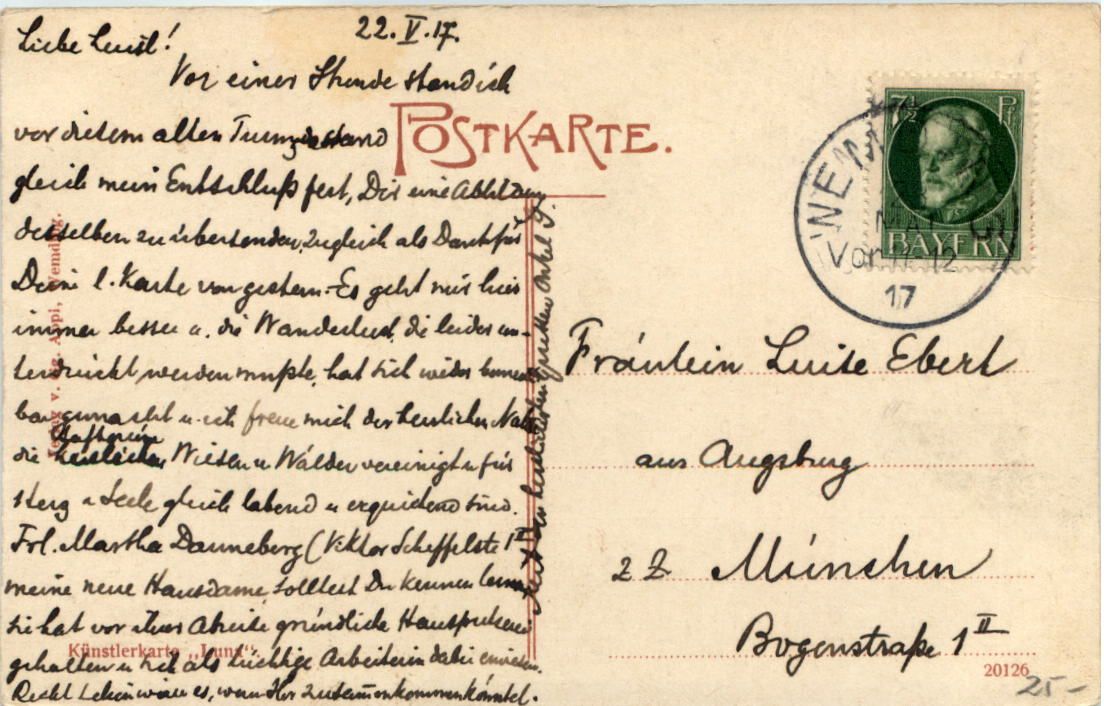 22. V. 17.
Liebe Luisl!
Vor einer Stunde stand ich
vor diesem alten Turm, da stand
gleich mein Entschluß fest, Dir eine Abbildung
desselben zu übersenden, zugleich als Dank für
Deine l. Karte von gestern. - Es geht mir hier
immer besser u. die Wanderlust, die leider un-
terdrückt werden mußte, hat sich wieder bemerk
bar gemacht u. ich freue mich der herrlichen Natur
die Wiesen u Wälder vereinigt u für
Herz u Seele gleich labend u erquickend sind.
Frl. Martha Danneberg (Viktor Scheffelstr 1 II
meine neue Hausdame, solltest Du kennen lernen
sie hat vor ihrer Abreise gründliche Hausputzerei
gehalten u sich als tüchtige Arbeiterin dabei erwiesen.
Recht schön wäre es, wenn Ihr zusammenkommen könntet.
Mit den herzlichsten Grüßen Onkel
POSTKARTE.
Verlag v. Appl, Wemding.
Künstlerkarte „Luna“.
7½ Pf
BAYERN
WEMDING
MAI
Vor. 11-12
17
Fräulein Luise Ebert
aus Augsburg
z Z München
Bogenstraße 1 II
20126
25-